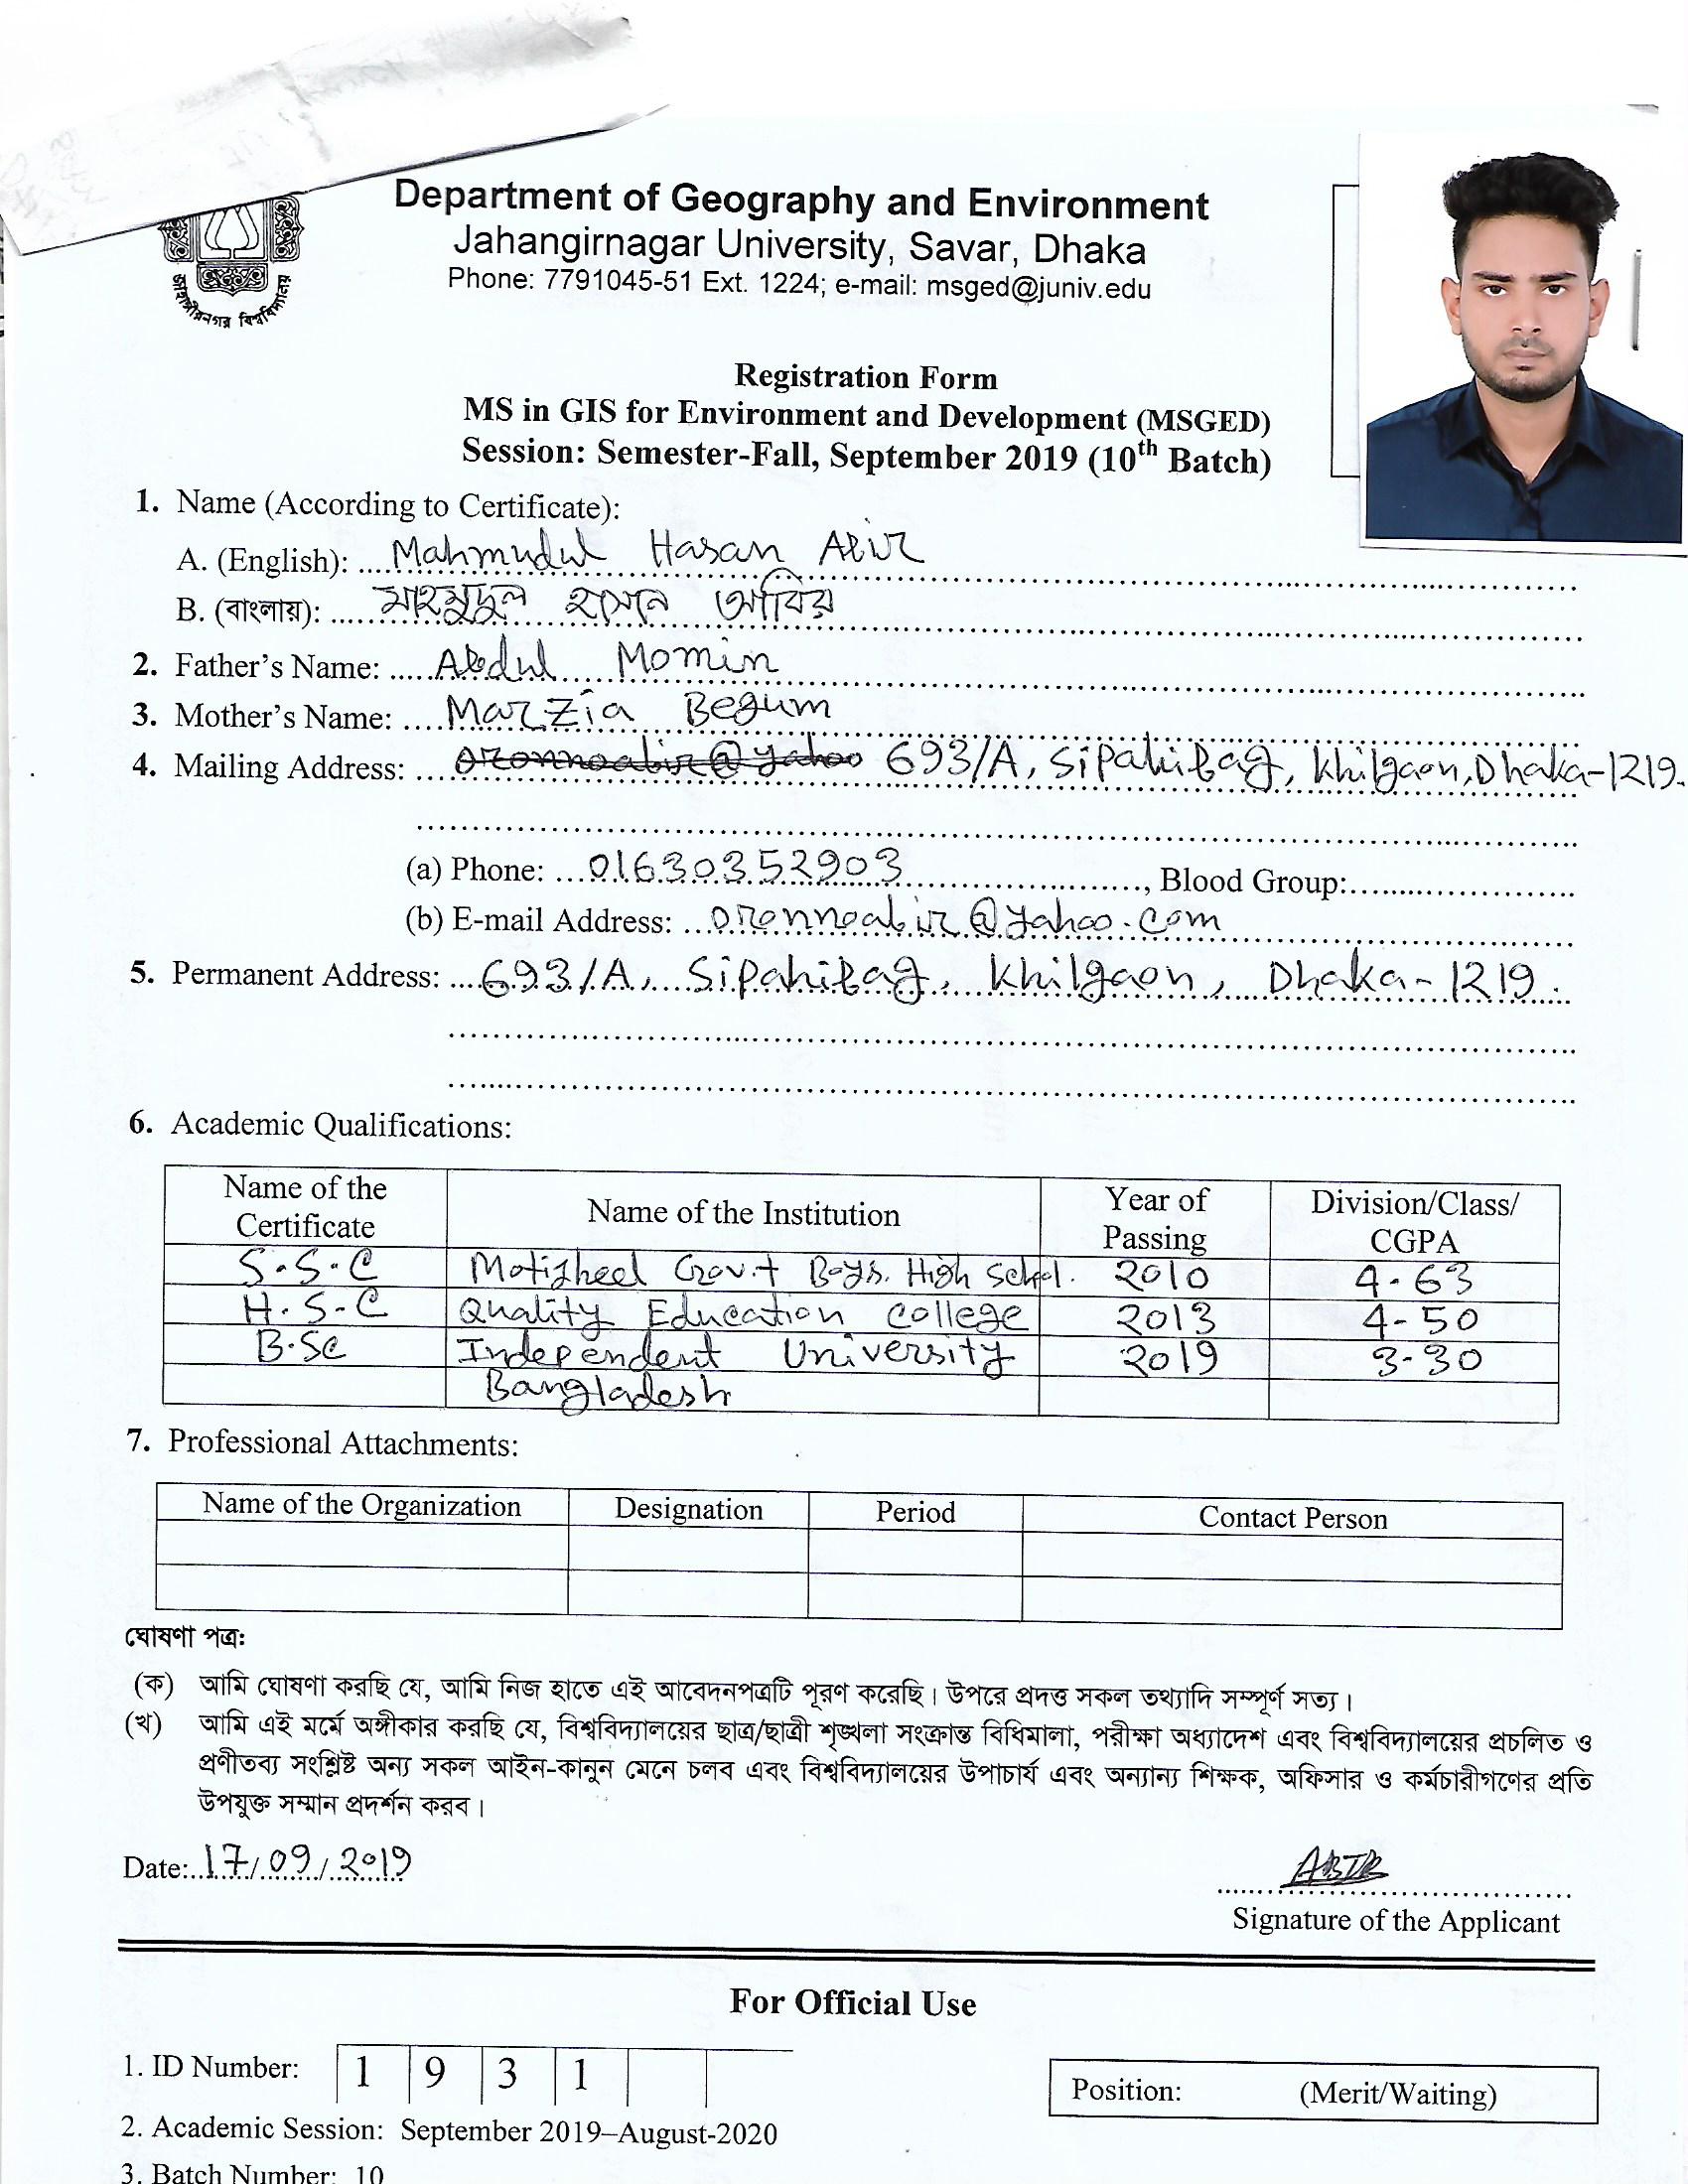 জাহাঙ্গীরনগর বিশ্ববিদ্যালয়
Department of Geography and Environment
Jahangirnagar University, Savar, Dhaka
Phone: 7791045-51 Ext. 1224; e-mail: msged@juniv.edu
Registration Form
MS in GIS for Environment and Development (MSGED)
Session: Semester-Fall, September 2019 (10th Batch)
1. Name (According to Certificate):
A. (English): Mahmudul Hasan Abir
B. (বাংলায়): মাহমুদুল হাসান আবির
2. Father's Name: Abdul Momin
3. Mother's Name: Marzia Begum
4. Mailing Address: oronnoabir@yahoo 693/A, Sipahibag, Khilgaon, Dhaka-1219.
(a) Phone: 01630352903, Blood Group:
(b) E-mail Address: oronnoabir@yahoo.com
5. Permanent Address: 693/A, Sipahibag, Khilgaon, Dhaka-1219.
6. Academic Qualifications:
Name of the Certificate Name of the Institution Year of Passing Division/Class/CGPA
S.S.C Motijheel Gov.t Boys. High School. 2010 4.63
H.S.C Quality Education College 2013 4.50
B.Sc Independent University 2019 3.30
Bangladesh
7. Professional Attachments:
Name of the Organization Designation Period Contact Person
ঘোষণা পত্র:
(ক) আমি ঘোষণা করছি যে, আমি নিজ হাতে এই আবেদনপত্রটি পূরণ করেছি। উপরে প্রদত্ত সকল তথ্যাদি সম্পূর্ণ সত্য।
(খ) আমি এই মর্মে অঙ্গীকার করছি যে, বিশ্ববিদ্যালয়ের ছাত্র/ছাত্রী শৃঙ্খলা সংক্রান্ত বিধিমালা, পরীক্ষা অধ্যাদেশ এবং বিশ্ববিদ্যালয়ের প্রচলিত ও
প্রণীতব্য সংশ্লিষ্ট অন্য সকল আইন-কানুন মেনে চলব এবং বিশ্ববিদ্যালয়ের উপাচার্য এবং অন্যান্য শিক্ষক, অফিসার ও কর্মচারীগণের প্রতি
উপযুক্ত সম্মান প্রদর্শন করব।
Date: 17/09/2019
ABIR
Signature of the Applicant
For Official Use
1. ID Number: 1 9 3 1
Position: (Merit/Waiting)
2. Academic Session: September 2019–August-2020
3. Batch Number: 10